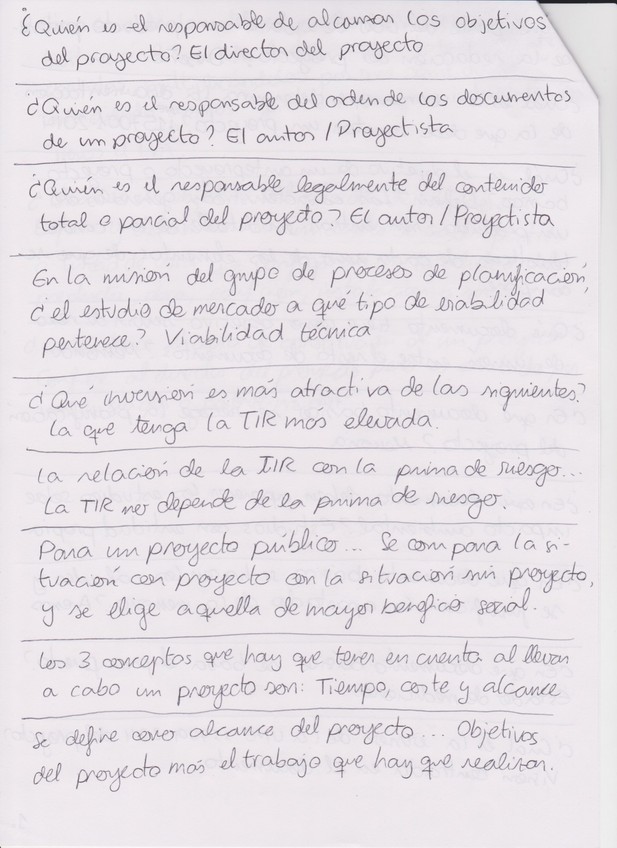 ¿Quién es el responsable de alcanzar los objetivos
del proyecto? El director del proyecto
¿Quién es el responsable del orden de los documentos
de un proyecto? El autor / Proyectista
¿Quién es el responsable legalmente del contenido
total o parcial del proyecto? El autor / Proyectista
En la misión del grupo de procesos de planificación,
¿el estudio de mercado a qué tipo de viabilidad
pertenece? Viabilidad técnica
¿Qué inversión es más atractiva de las siguientes?
La que tenga la TIR más elevada.
La relación de la TIR con la prima de riesgo...
La TIR no depende de la prima de riesgo.
Para un proyecto público... Se compara la si-
tuación con proyecto con la situación sin proyecto,
y se elige aquella de mayor beneficio social.
Los 3 conceptos que hay que tener en cuenta al llevar
a cabo un proyecto son: Tiempo, coste y alcance
Se define como alcance del proyecto... Objetivos
del proyecto más el trabajo que hay que realizar.